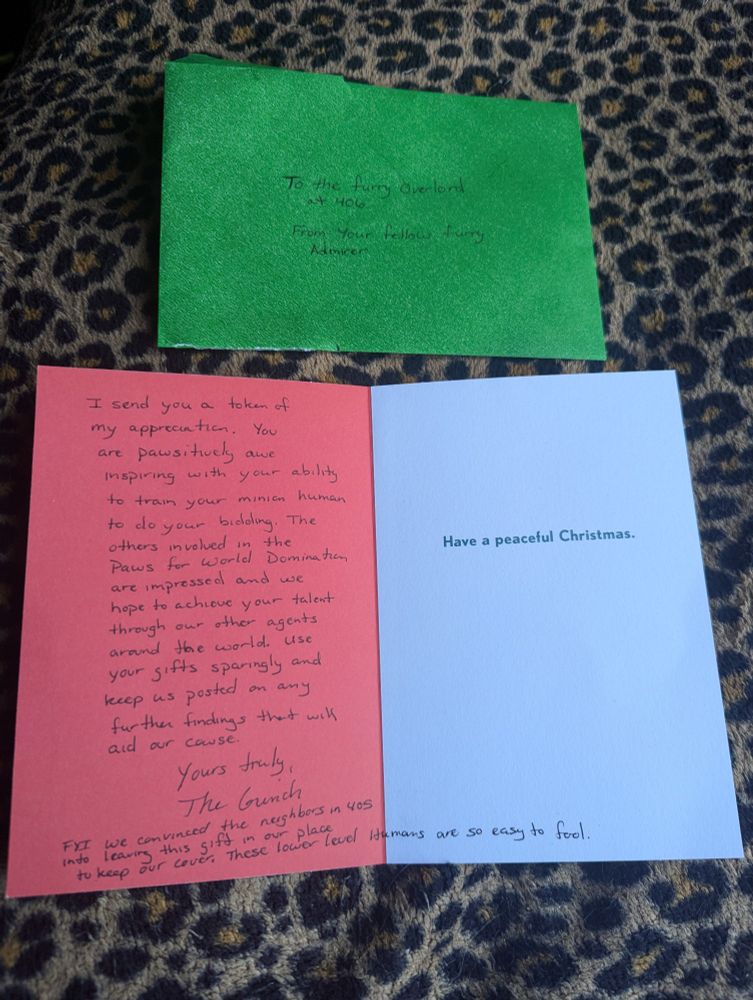 To the furry Overlord
at 406
From Your fellow furry
Admirer
I send you a token of
my appreciation. You
are pawsitively awe
inspiring with your ability
to train your minion human
to do your bidding. The
others involved in the
Paws for World Domination
are impressed and we
hope to achieve your talent
through our other agents
around the world. Use
your gifts sparingly and
keep us posted on any
further findings that will
aid our cause.
Yours truly,
The
FYI we convinced the neighbors in 405
into leaving this gift in our place
to keep our cover. These lower level Humans are so easy to fool.
Have a peaceful Christmas.